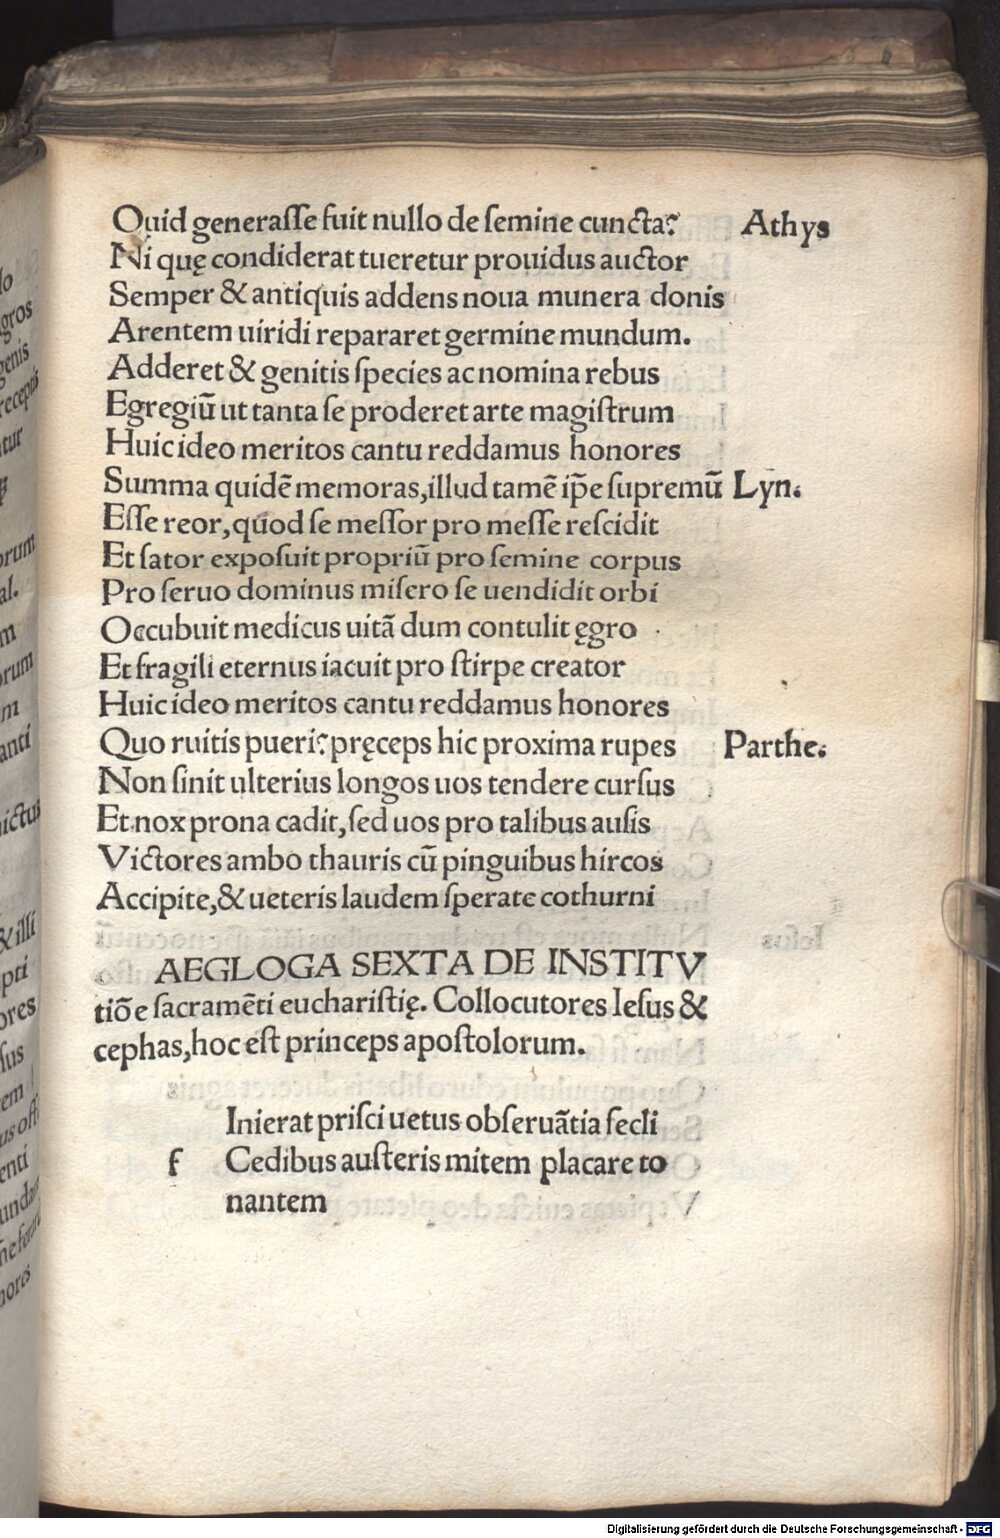 Quid generaſſe fuit nullo de ſemine cuncta? Athys
Ni quę condiderat tueretur prouidus auctor
Semper & antiquis addens noua munera donis
Arentem uiridi repararet germine mundum.
Adderet & genitis ſpecies ac nomina rebus
Egregiū ut tanta ſe proderet arte magiſtrum
Huic ideo meritos cantu reddamus honores
Summa quidē memoras, illud tamē ip̄e ſupremū Lyn.
Eſſe reor, quod ſe meſſor pro meſſe reſcidit
Et ſator expoſuit propriū pro ſemine corpus
Pro ſeruo dominus miſero ſe uendidit orbi
Occubuit medicus uitā dum contulit ęgro
Et fragili eternus iacuit pro ſtirpe creator
Huic ideo meritos cantu reddamus honores
Quo ruitis pueri? pręceps hic proxima rupes Parthe.
Non ſinit ulterius longos uos tendere curſus
Et nox prona cadit, ſed uos pro talibus auſis
Victores ambo thauris cū pinguibus hircos
Accipite, & ueteris laudem ſperate cothurni
AEGLOGA SEXTA DE INSTITV
tiōe ſacramēti euchariſtię. Collocutores Ieſus &
cephas, hoc eſt princeps apoſtolorum.
Inierat priſci uetus obſeruātia ſecli
f Cedibus auſteris mitem placare to
nantem
Digitalisierung gefördert durch die Deutsche Forschungsgemeinschaft - DFG